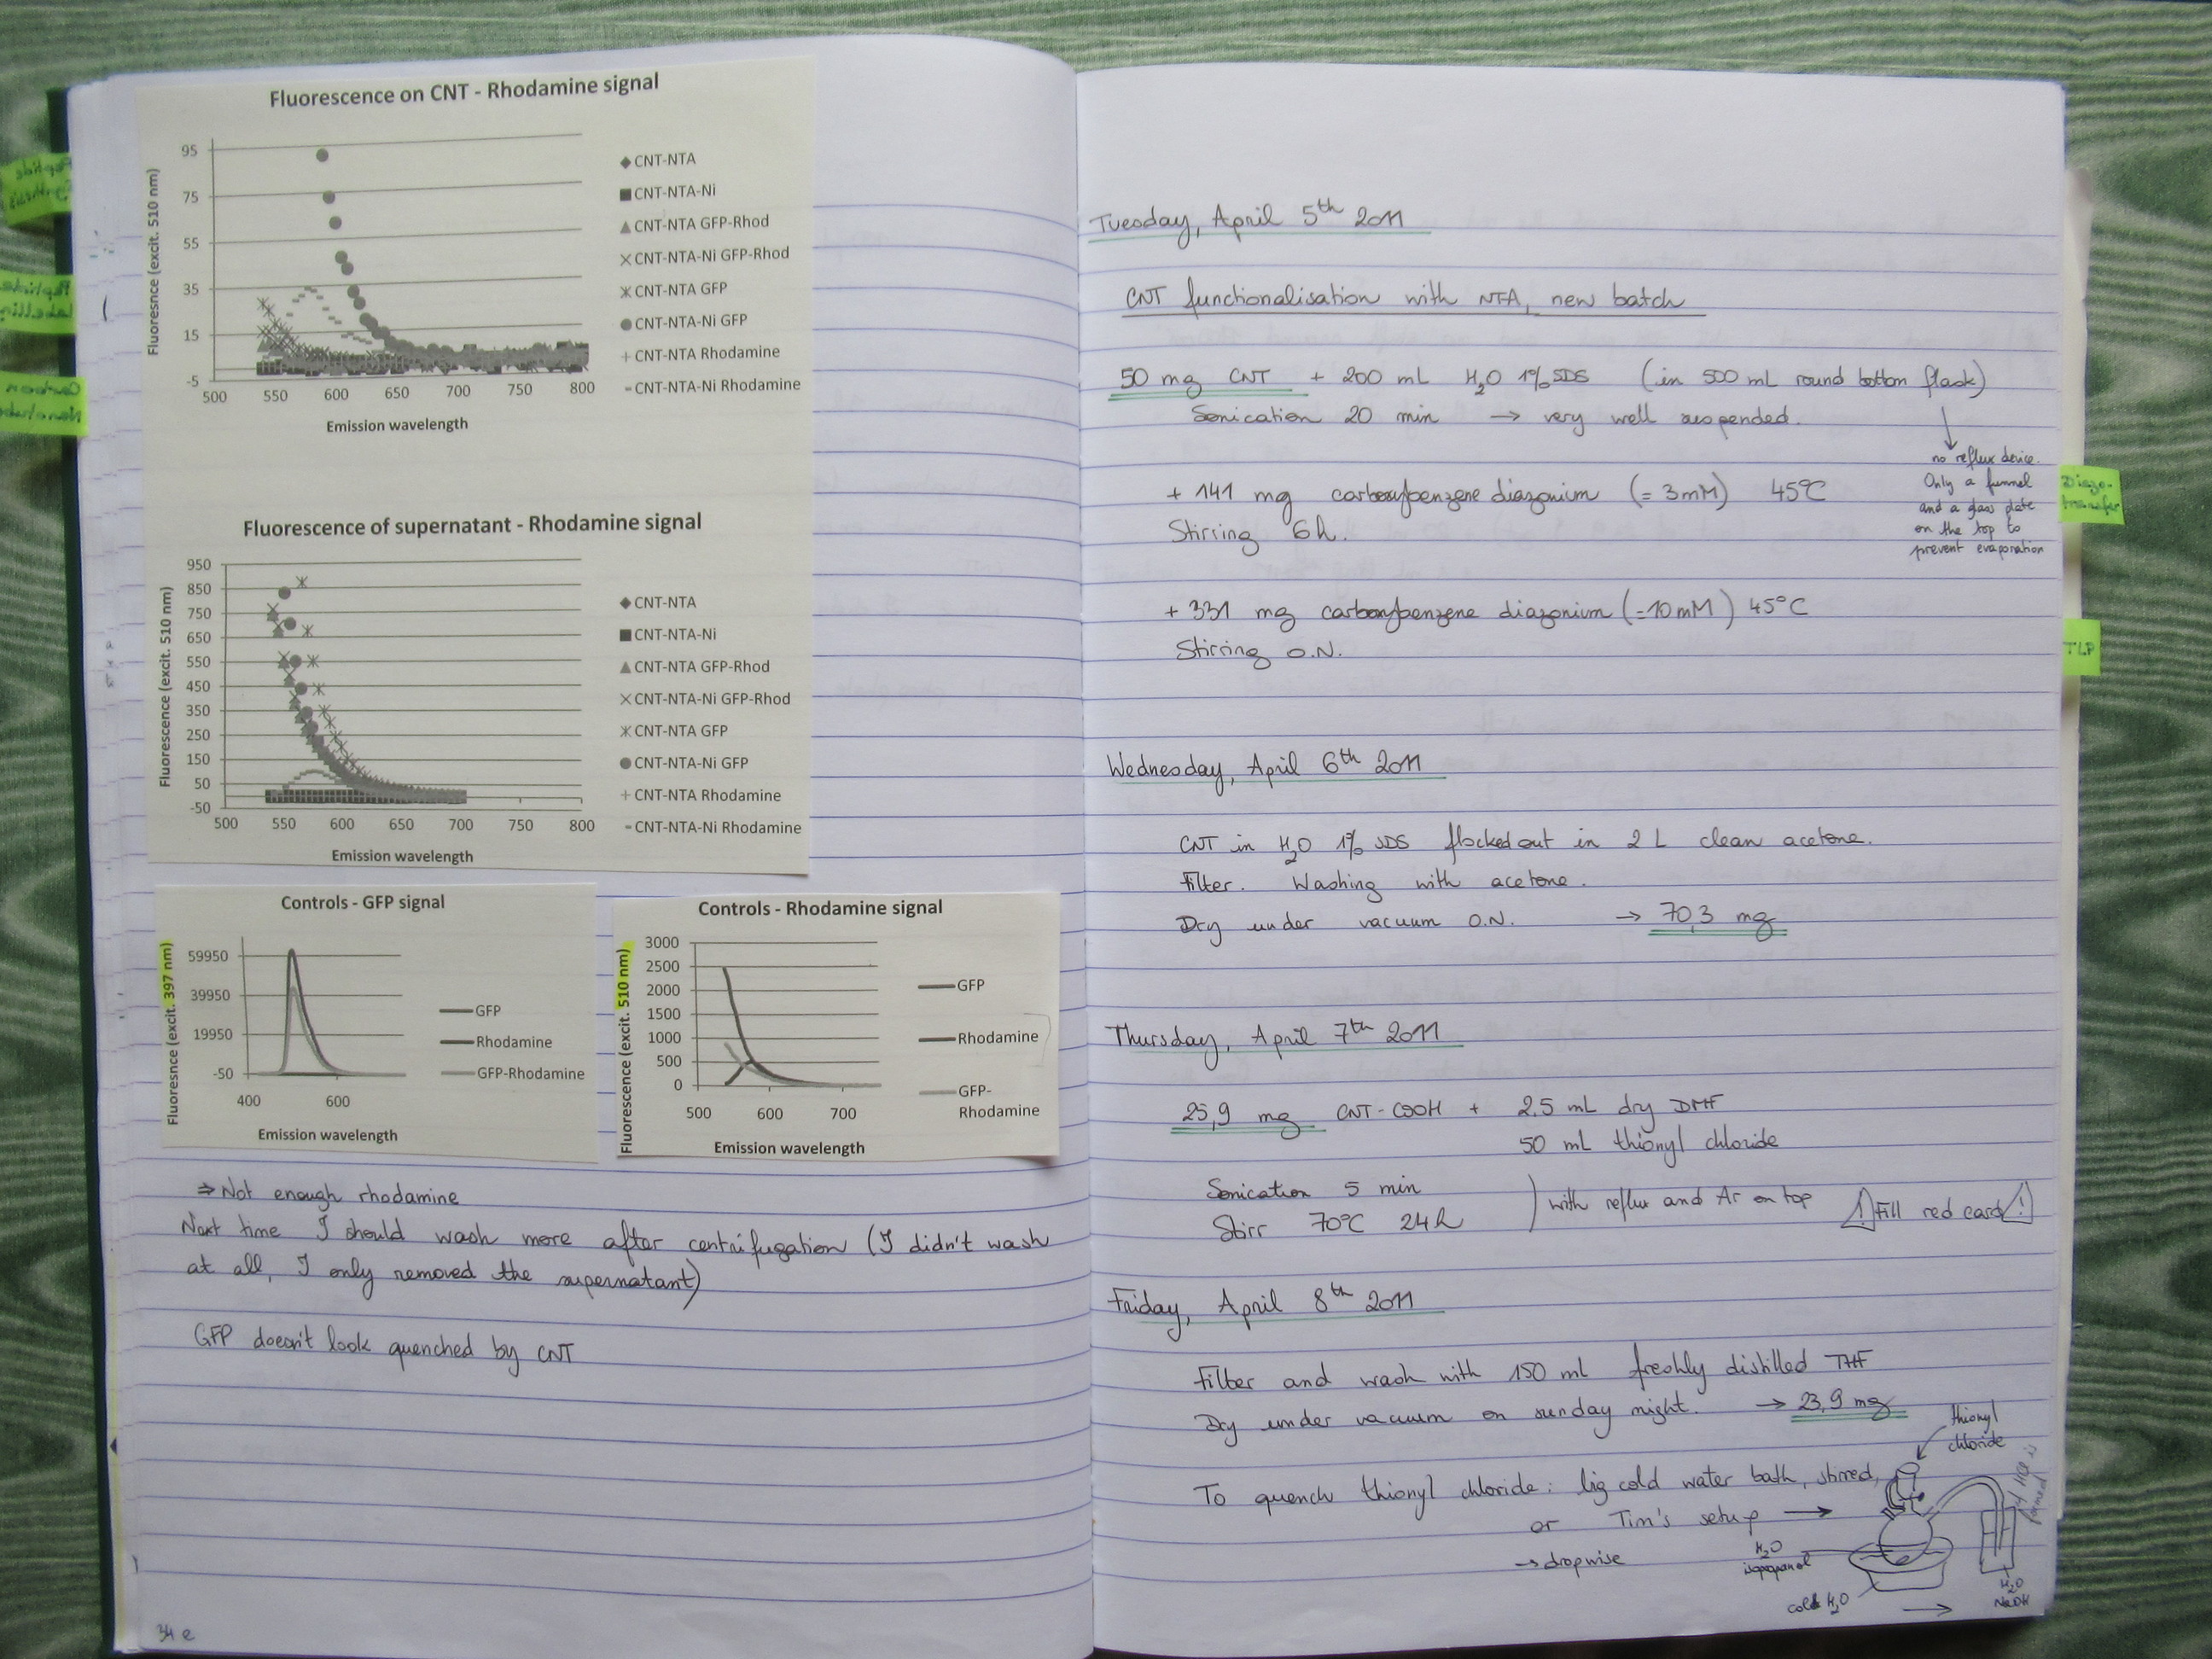 Fluorescence on CNT - Rhodamine signal
Fluoresnce (excit. 510 nm)
95
75
55
35
15
-5
500 550 600 650 700 750 800
Emission wavelength
◆ CNT-NTA
■ CNT-NTA-Ni
▲ CNT-NTA GFP-Rhod
× CNT-NTA-Ni GFP-Rhod
CNT-NTA GFP
● CNT-NTA-Ni GFP
+ CNT-NTA Rhodamine
- CNT-NTA-Ni Rhodamine
Fluorescence of supernatant - Rhodamine signal
Fluorescence (excit. 510 nm)
950
850
750
650
550
450
350
250
150
50
-50
500 550 600 650 700 750 800
Emission wavelength
◆ CNT-NTA
■ CNT-NTA-Ni
▲ CNT-NTA GFP-Rhod
× CNT-NTA-Ni GFP-Rhod
CNT-NTA GFP
● CNT-NTA-Ni GFP
+ CNT-NTA Rhodamine
- CNT-NTA-Ni Rhodamine
Controls - GFP signal
Fluoresnce (excit. 397 nm)
59950
39950
19950
-50
400 600
Emission wavelength
GFP
Rhodamine
GFP-Rhodamine
Controls - Rhodamine signal
Fluorescence (excit. 510 nm)
3000
2500
2000
1500
1000
500
0
500 600 700
Emission wavelength
GFP
Rhodamine
GFP-
Rhodamine
⇒ Not enough rhodamine
Next time I should wash more after centrifugation (I didn't wash
at all, I only removed the supernatant)
GFP doesn't look quenched by CNT
34 e
Peptide
Synthesis
Peptide
labelling
Carbon
Nanotube
Tuesday, April 5th 2011
CNT functionalisation with NTA, new batch
50 mg CNT + 200 mL H2O 1% SDS (in 500 mL round bottom flask)
Sonication 20 min → very well suspended.
no reflux device.
Only a funnel
and a glass plate
on the top to
prevent evaporation
+ 141 mg carboxybenzene diazonium (= 3 mM) 45°C
Stirring 6h.
+ 331 mg carboxybenzene diazonium (=10 mM) 45°C
Stirring O.N.
Wednesday, April 6th 2011
CNT in H2O 1% SDS flocked out in 2 L clean acetone.
Filter. Washing with acetone.
Dry under vacuum O.N. → 70,3 mg
Thursday, April 7th 2011
25,9 mg CNT-COOH + 2,5 mL dry DMF
50 mL thionyl chloride
Sonication 5 min
Stirr 70°C 24h
) with reflux and Ar on top
! Fill red card !
Friday, April 8th 2011
Filter and wash with 150 ml freshly distilled THF
Dry under vacuum on sunday night. → 23,9 mg
To quench thionyl chloride: big cold water bath, stirred,
or Tim's setup →
→ dropwise
thionyl
chloride
H2O
isopropanol
cold H2O
H2O
NaOH
Diazo-
transfer
TLP